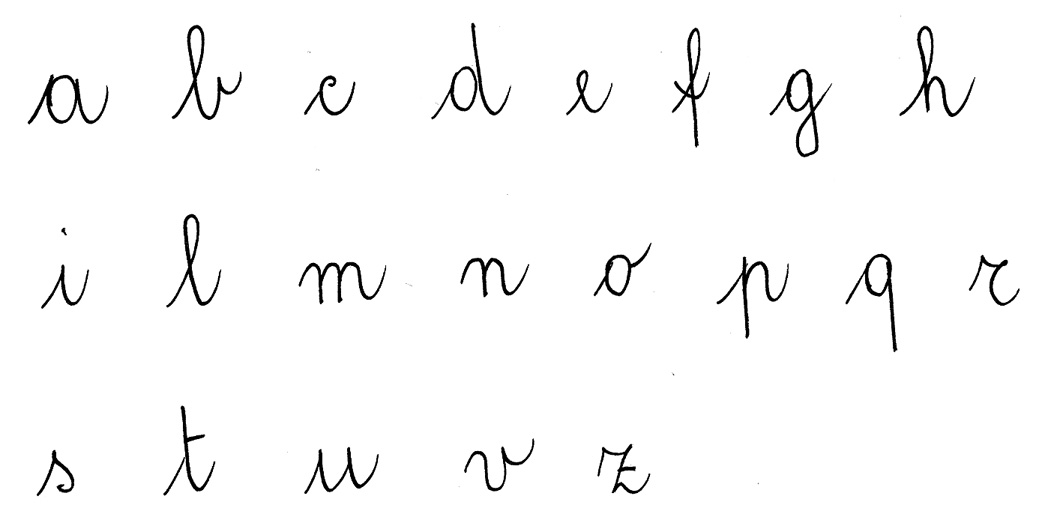 a b c d e f g h
i l m n o p q r
s t u v z